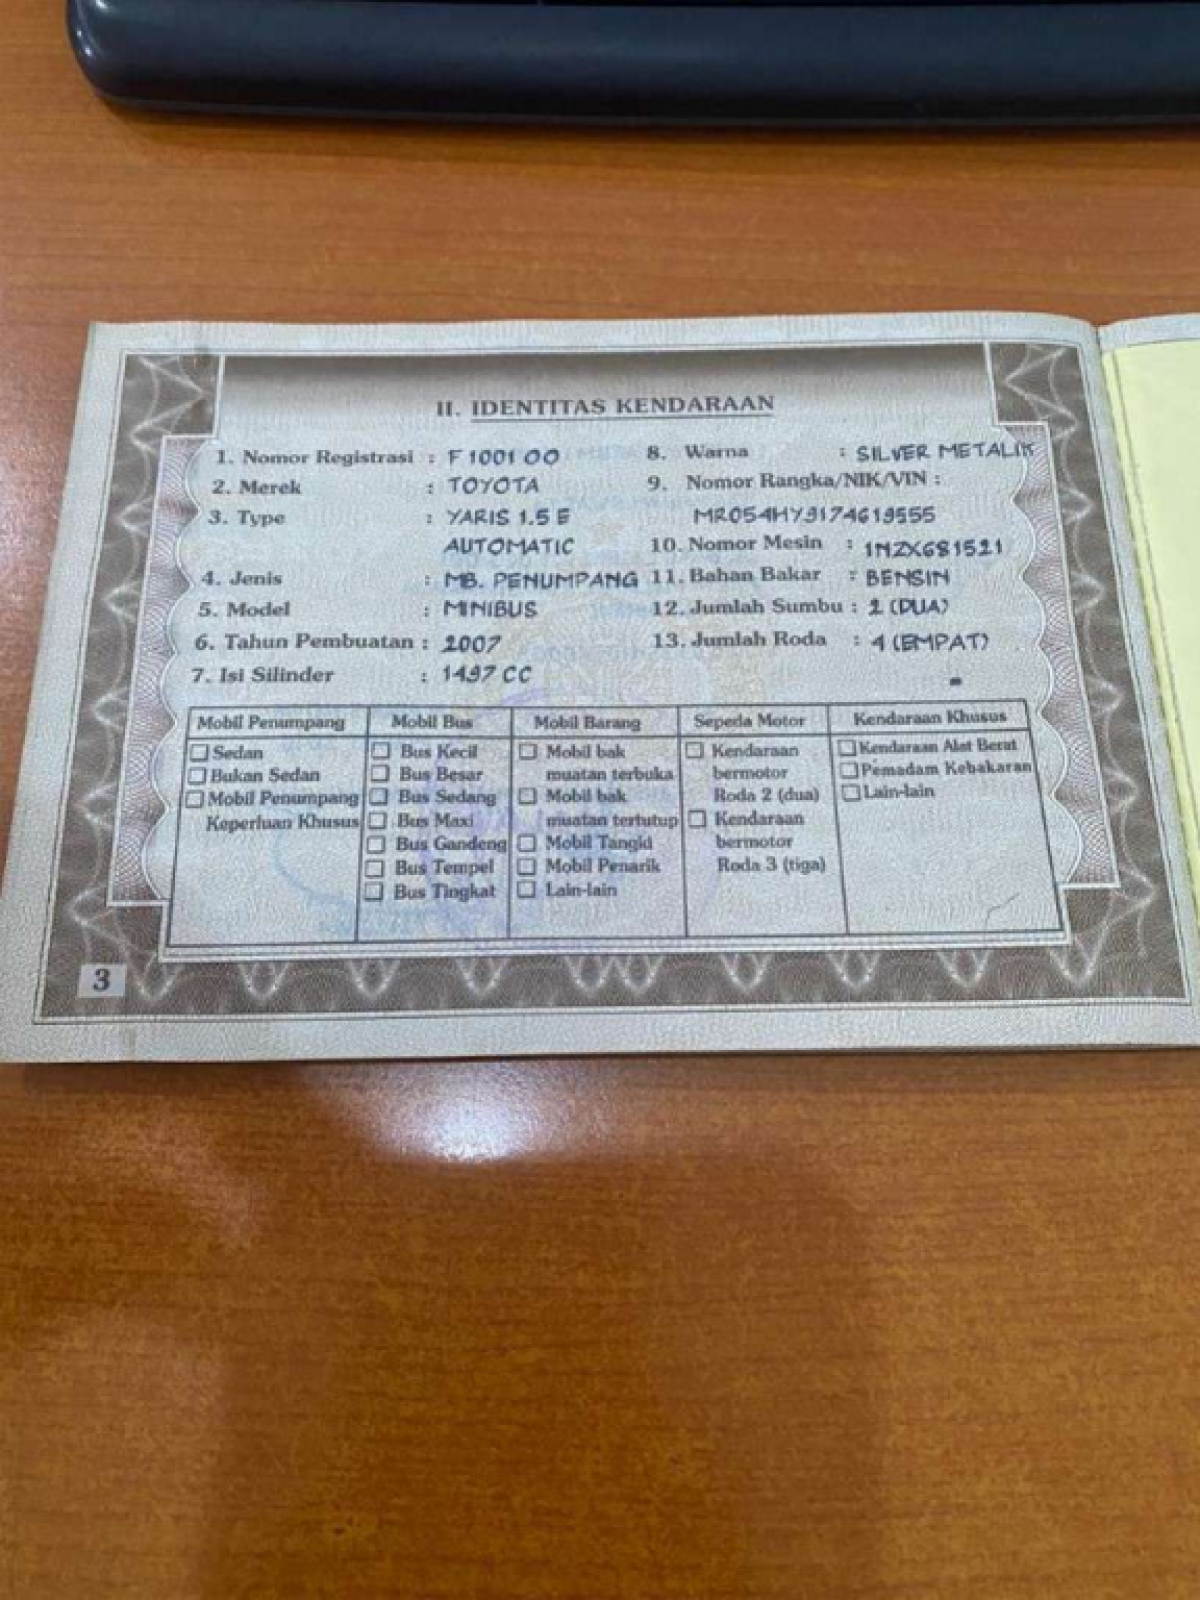 II. IDENTITAS KENDARAAN
1. Nomor Registrasi : F 1001 OO
2. Merek : TOYOTA
3. Type : YARIS 1.5 E
AUTOMATIC
4. Jenis : MB. PENUMPANG
5. Model : MINIBUS
6. Tahun Pembuatan : 2007
7. Isi Silinder : 1497 CC
8. Warna : SILVER METALIK
9. Nomor Rangka/NIK/VIN :
MR054HY9174619555
10. Nomor Mesin : 1NZX681521
11. Bahan Bakar : BENSIN
12. Jumlah Sumbu : 2 (DUA)
13. Jumlah Roda : 4 (EMPAT)
-
Mobil Penumpang
Sedan
Bukan Sedan
Mobil Penumpang
Keperluan Khusus
Mobil Bus
Bus Kecil
Bus Besar
Bus Sedang
Bus Maxi
Bus Gandeng
Bus Tempel
Bus Tingkat
Mobil Barang
Mobil bak
muatan terbuka
Mobil bak
muatan tertutup
Mobil Tangid
Mobil Penarik
Lain-lain
Sepeda Motor
Kendaraan
bermotor
Roda 2 (dua)
Kendaraan
bermotor
Roda 3 (tiga)
Kendaraan Khusus
Kendaraan Alat Berat
Pemadam Kebakaran
Lain-lain
3